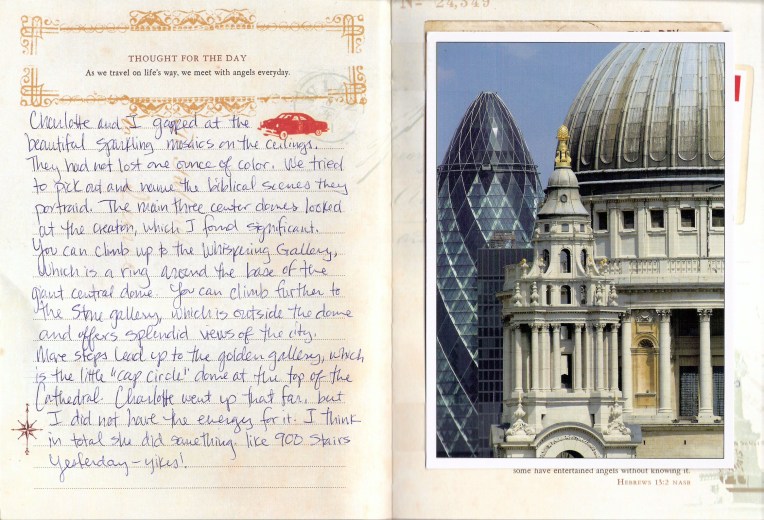 THOUGHT FOR THE DAY
As we travel on life's way, we meet with angels everyday.
Charlotte and I gapped at the
beautiful sparkling mosaics on the ceilings.
They had not lost one ounce of color. We tried
to pick out and name the biblical scenes they
portraid. The main three center domes looked
at the creation, which I found significant.
You can climb up to the Whispering Gallery,
which is a ring around the base of the
giant central dome. You can climb further to
the Stone gallery, which is outside the dome
and offers splendid views of the city.
More steps lead up to the golden gallery, which
is the little "cap circle" dome at the top of the
Cathedral. Charlotte went up that far, but
I did not have the energy for it. I think
in total she did something like 900 stairs
yesterday - yikes!
No 24,349
some have entertained angels without knowing it.
HEBREWS 13:2 NASB